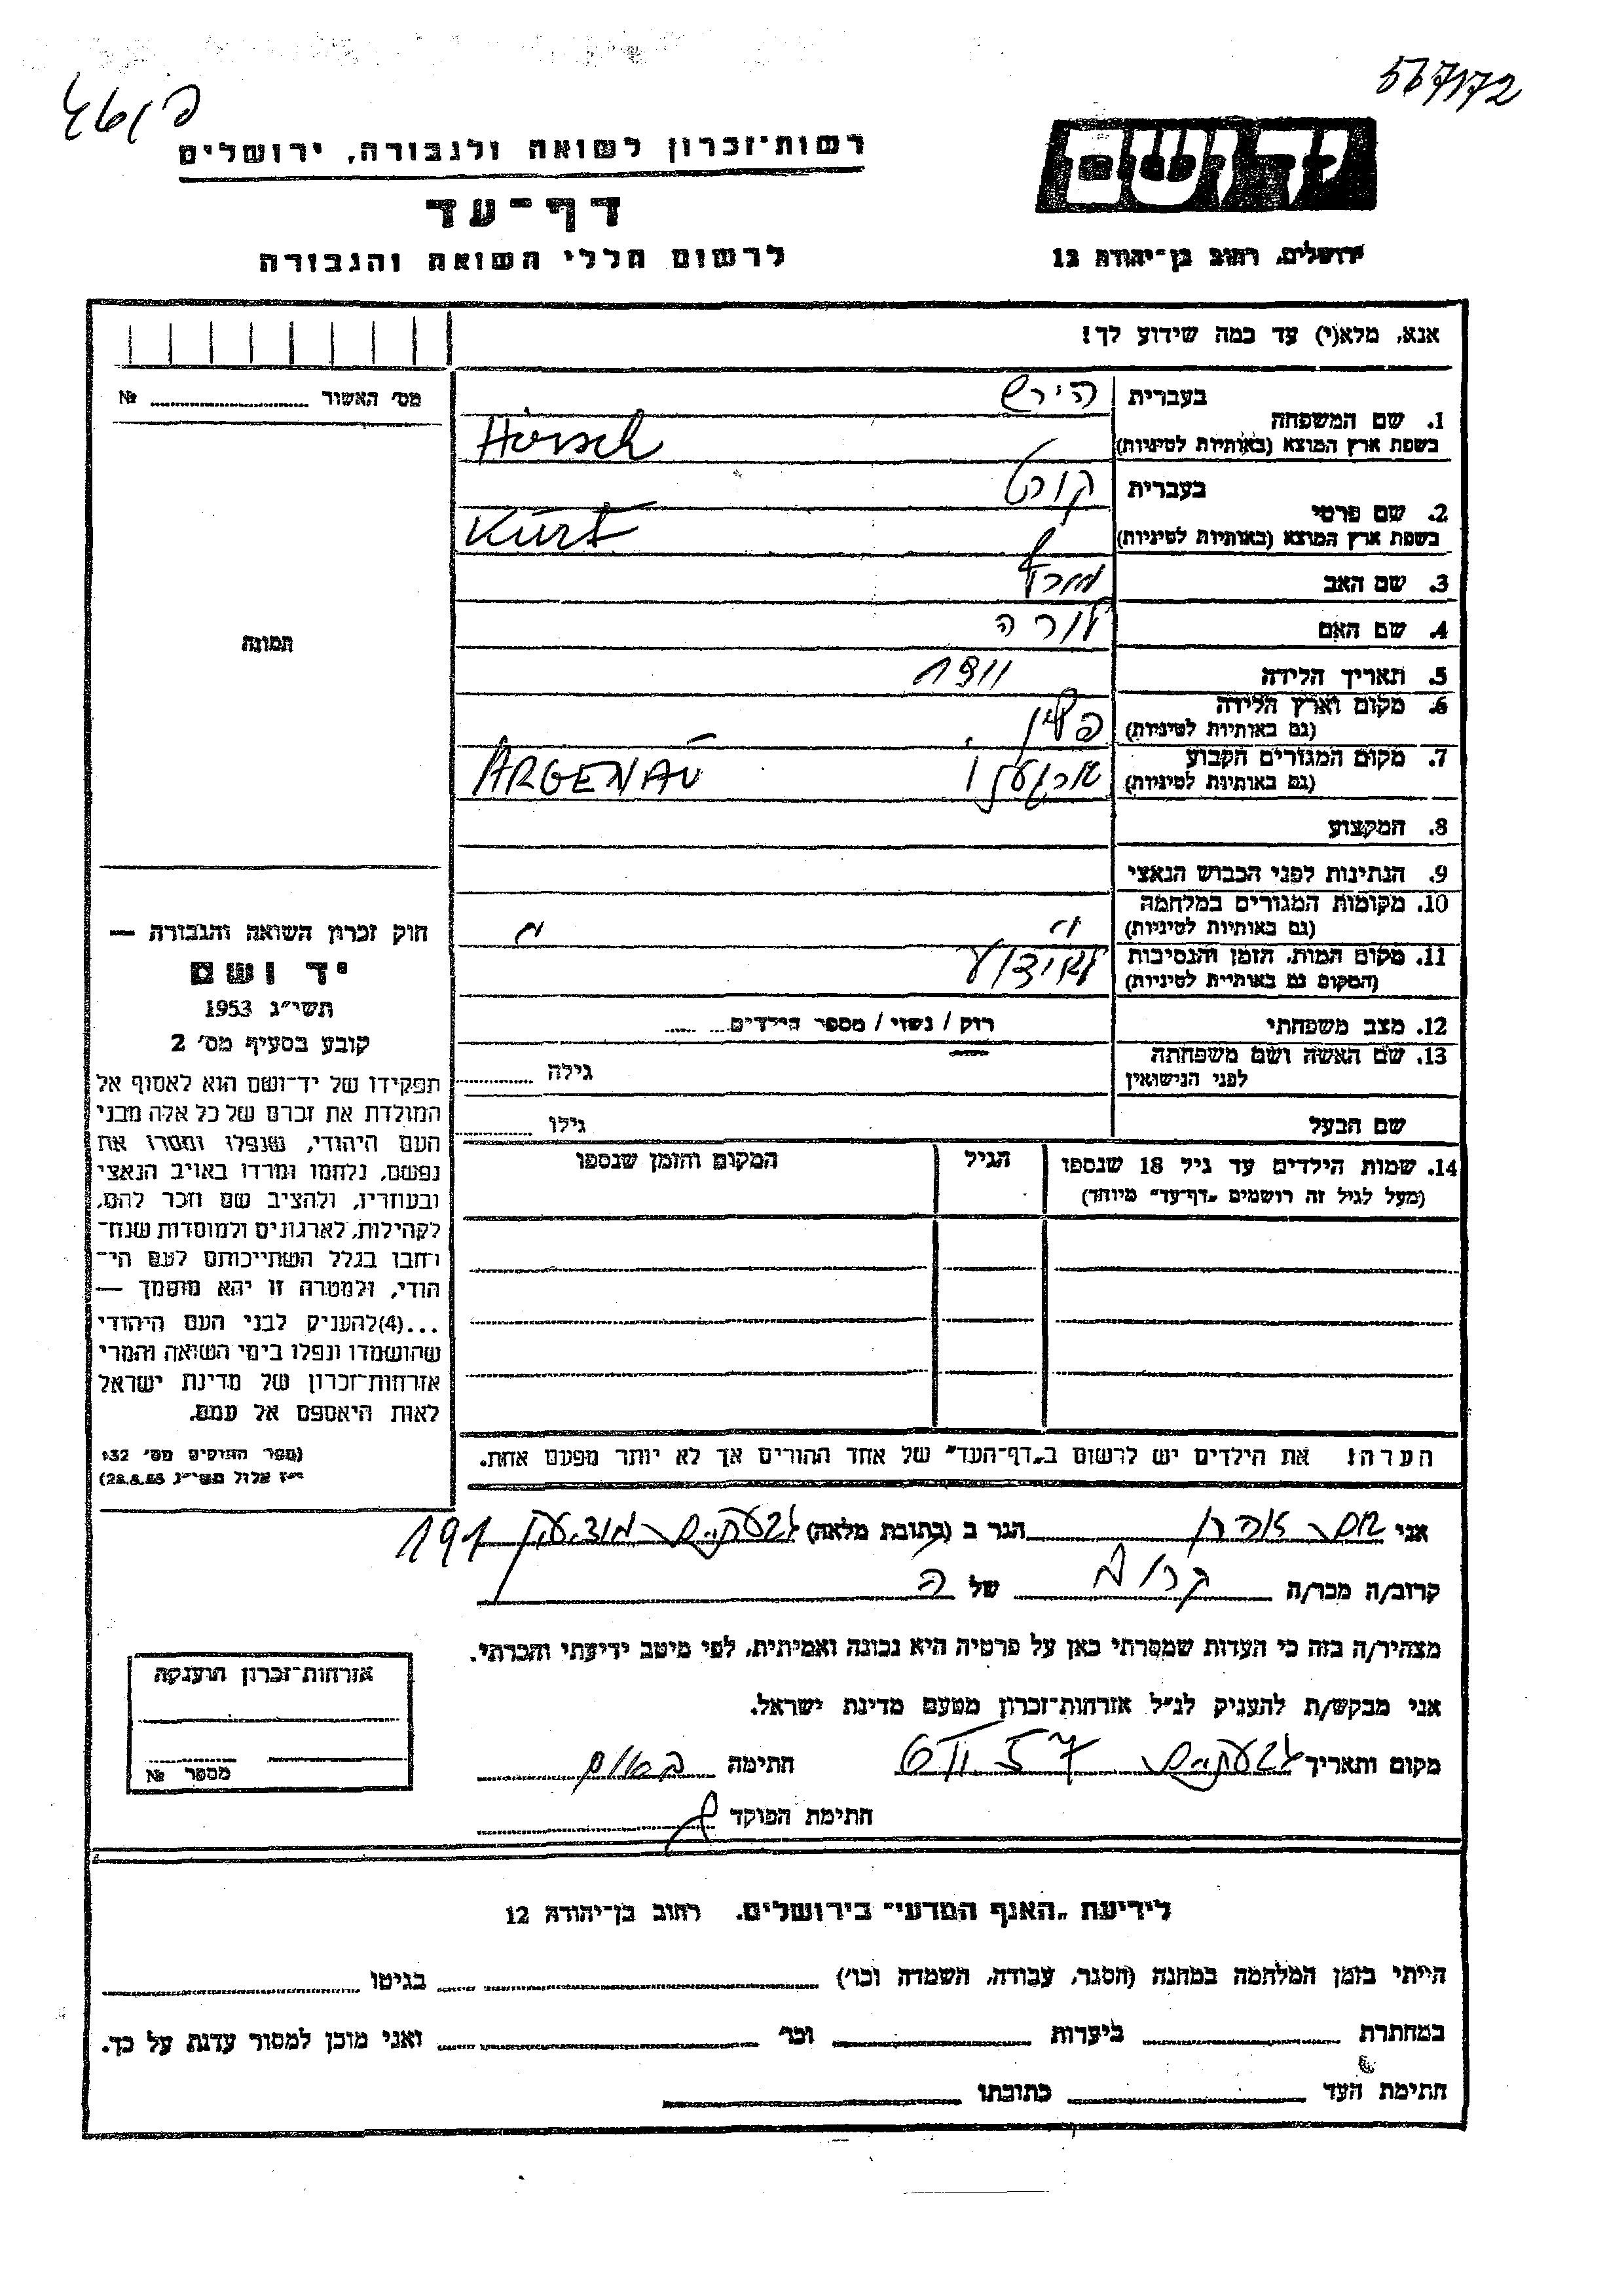 567172
רשות־זכרון לשואה ולגבורה, ירושלים
דף־עד
לרשום חללי השואה והגבורה
יד ושם
ירושלים, רחוב בן־יהודה 12
אנא, מלא(י) עד כמה שידוע לך!
מס׳ האשור № 
1. שם המשפחה
בעברית הירש
בשפת ארץ המוצא (באותיות לטיניות) Hirsch
2. שם פרטי
בעברית קורט
בשפת ארץ המוצא (באותיות לטיניות) Kurt
3. שם האב
4. שם האם
5. תאריך הלידה 1911
6. מקום וארץ הלידה
(גם באותיות לטיניות)
7. מקום המגורים הקבוע
(גם באותיות לטיניות) ARGENAU
8. המקצוע
9. הנתינות לפני הכבוש הנאצי
10. מקומות המגורים במלחמה
(גם באותיות לטיניות)
11. מקום המות, הזמן והנסיבות
(המקום גם באותיות לטיניות) לא ידוע
12. מצב משפחתי רוק / נשוי / מספר הילדים
13. שם האשה ושם משפחתה
לפני הנישואין
גילה
שם הבעל
גילו
14. שמות הילדים עד גיל 18 שנספו
(מעל לגיל זה רושמים „דף־עד" מיוחד)
הגיל
המקום והזמן שנספו
תמונה
חוק זכרון השואה והגבורה —
יד ושם
תשי״ג 1953
קובע בסעיף מס׳ 2
תפקידו של יד־ושם הוא לאסוף אל
המולדת את זכרם של כל אלה מבני
העם היהודי, שנפלו ומסרו את
נפשם, נלחמו ומרדו באויב הנאצי
ובעוזריו, ולהציב שם וזכר להם,
לקהילות, לארגונים ולמוסדות שנח־
רבו בגלל השתייכותם לעם הי־
הודי, ולמטרה זו יהא מוסמך —
...(4)להעניק לבני העם היהודי
שהושמדו ונפלו בימי השואה והמרי
אזרחות־זכרון של מדינת ישראל
לאות היאספם אל עמם.
(ספר החוקים מס׳ 132
י״ז אלול תשי״ג 28.8.53)
הערה: את הילדים יש לרשום ב„דף־העד" של אחד ההורים אך לא יותר מפעם אחת.
אני אהרן הגר ב (כתובת מלאה) גבעתיים 191
קרוב/ה מכר/ה קרוב של ה
מצהיר/ה בזה כי העדות שמסרתי כאן על פרטיה היא נכונה ואמיתית, לפי מיטב ידיעתי והכרתי.
אני מבקש/ת להעניק לנ״ל אזרחות־זכרון מטעם מדינת ישראל.
מקום ותאריך גבעתיים חתימה
חתימת הפוקד
אזרחות־זכרון הוענקה
מספר №
לידיעת „האגף המדעי" בירושלים. רחוב בן־יהודה 12
הייתי בזמן המלחמה במחנה (הסגר, עבודה, השמדה וכו׳) בגיטו
במחתרת ביערות וכו׳ ואני מוכן למסור עדות על כך.
חתימת העד כתובתו